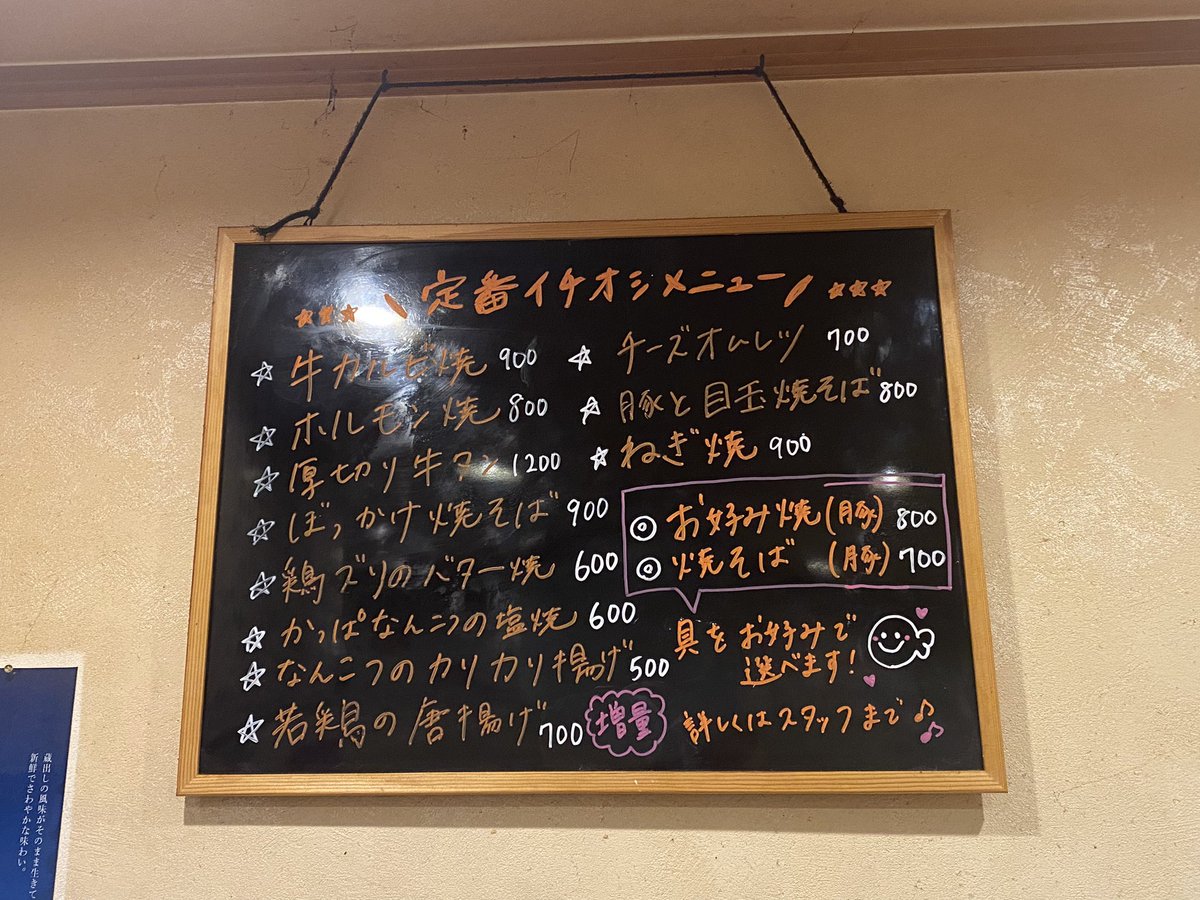 定番イチオシメニュー
☆ 牛カルビ焼 900
☆ ホルモン焼 800
☆ 厚切り牛タン 1200
☆ ぼっかけ焼そば 900
☆ 鶏ズリのバター焼 600
☆ かっぱなんこつの塩焼 600
☆ なんこつのカリカリ揚げ 500
☆ 若鶏の唐揚げ 700 増量
☆ チーズオムレツ 700
☆ 豚と目玉焼そば 800
☆ ねぎ焼 900
◎ お好み焼(豚) 800
◎ 焼そば (豚) 700
具をお好みで
選べます!
詳しくはスタッフまで♪♪
蔵出しの風味がそのまま生きて
新鮮でさわやかな味わい。